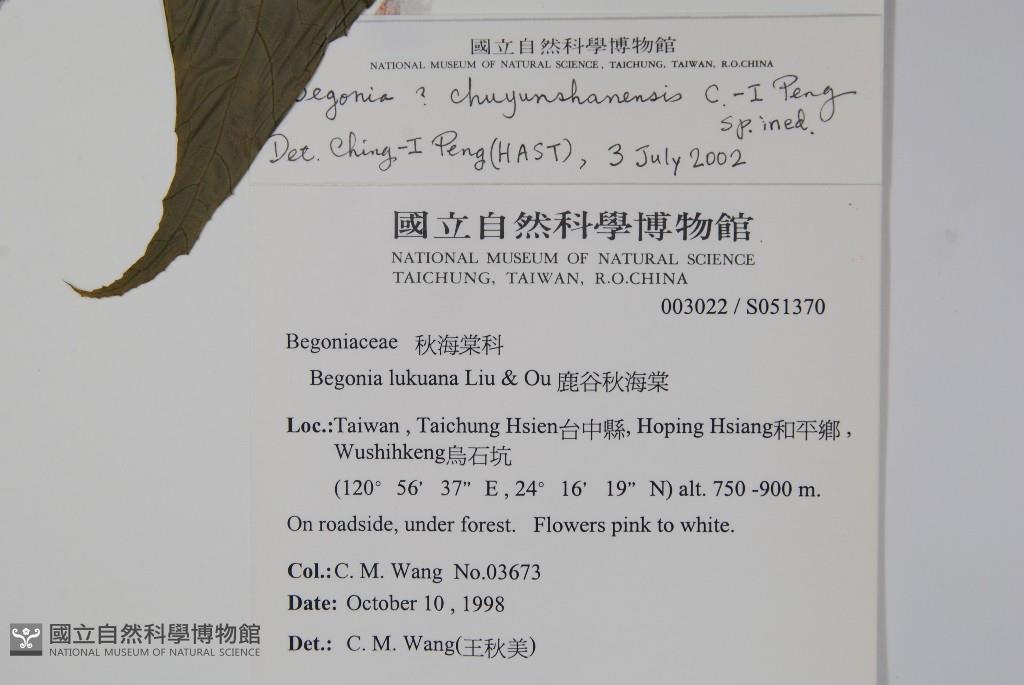 國立自然科學博物館
NATIONAL MUSEUM OF NATURAL SCIENCE, TAICHUNG, TAIWAN, R.O.CHINA
Begonia ? chuyunshanensis C.-I Peng
sp. ined.
Det. Ching-I Peng (HAST), 3 July 2002
國立自然科學博物館
NATIONAL MUSEUM OF NATURAL SCIENCE
TAICHUNG, TAIWAN, R.O.CHINA
003022 / S051370
Begoniaceae 秋海棠科
Begonia lukuana Liu & Ou 鹿谷秋海棠
Loc.:Taiwan , Taichung Hsien台中縣, Hoping Hsiang和平鄉 ,
Wushihkeng烏石坑
(120° 56' 37” E , 24° 16' 19” N) alt. 750 -900 m.
On roadside, under forest. Flowers pink to white.
Col.: C. M. Wang No.03673
Date: October 10 , 1998
Det.: C. M. Wang(王秋美)
國立自然科學博物館
NATIONAL MUSEUM OF NATURAL SCIENCE